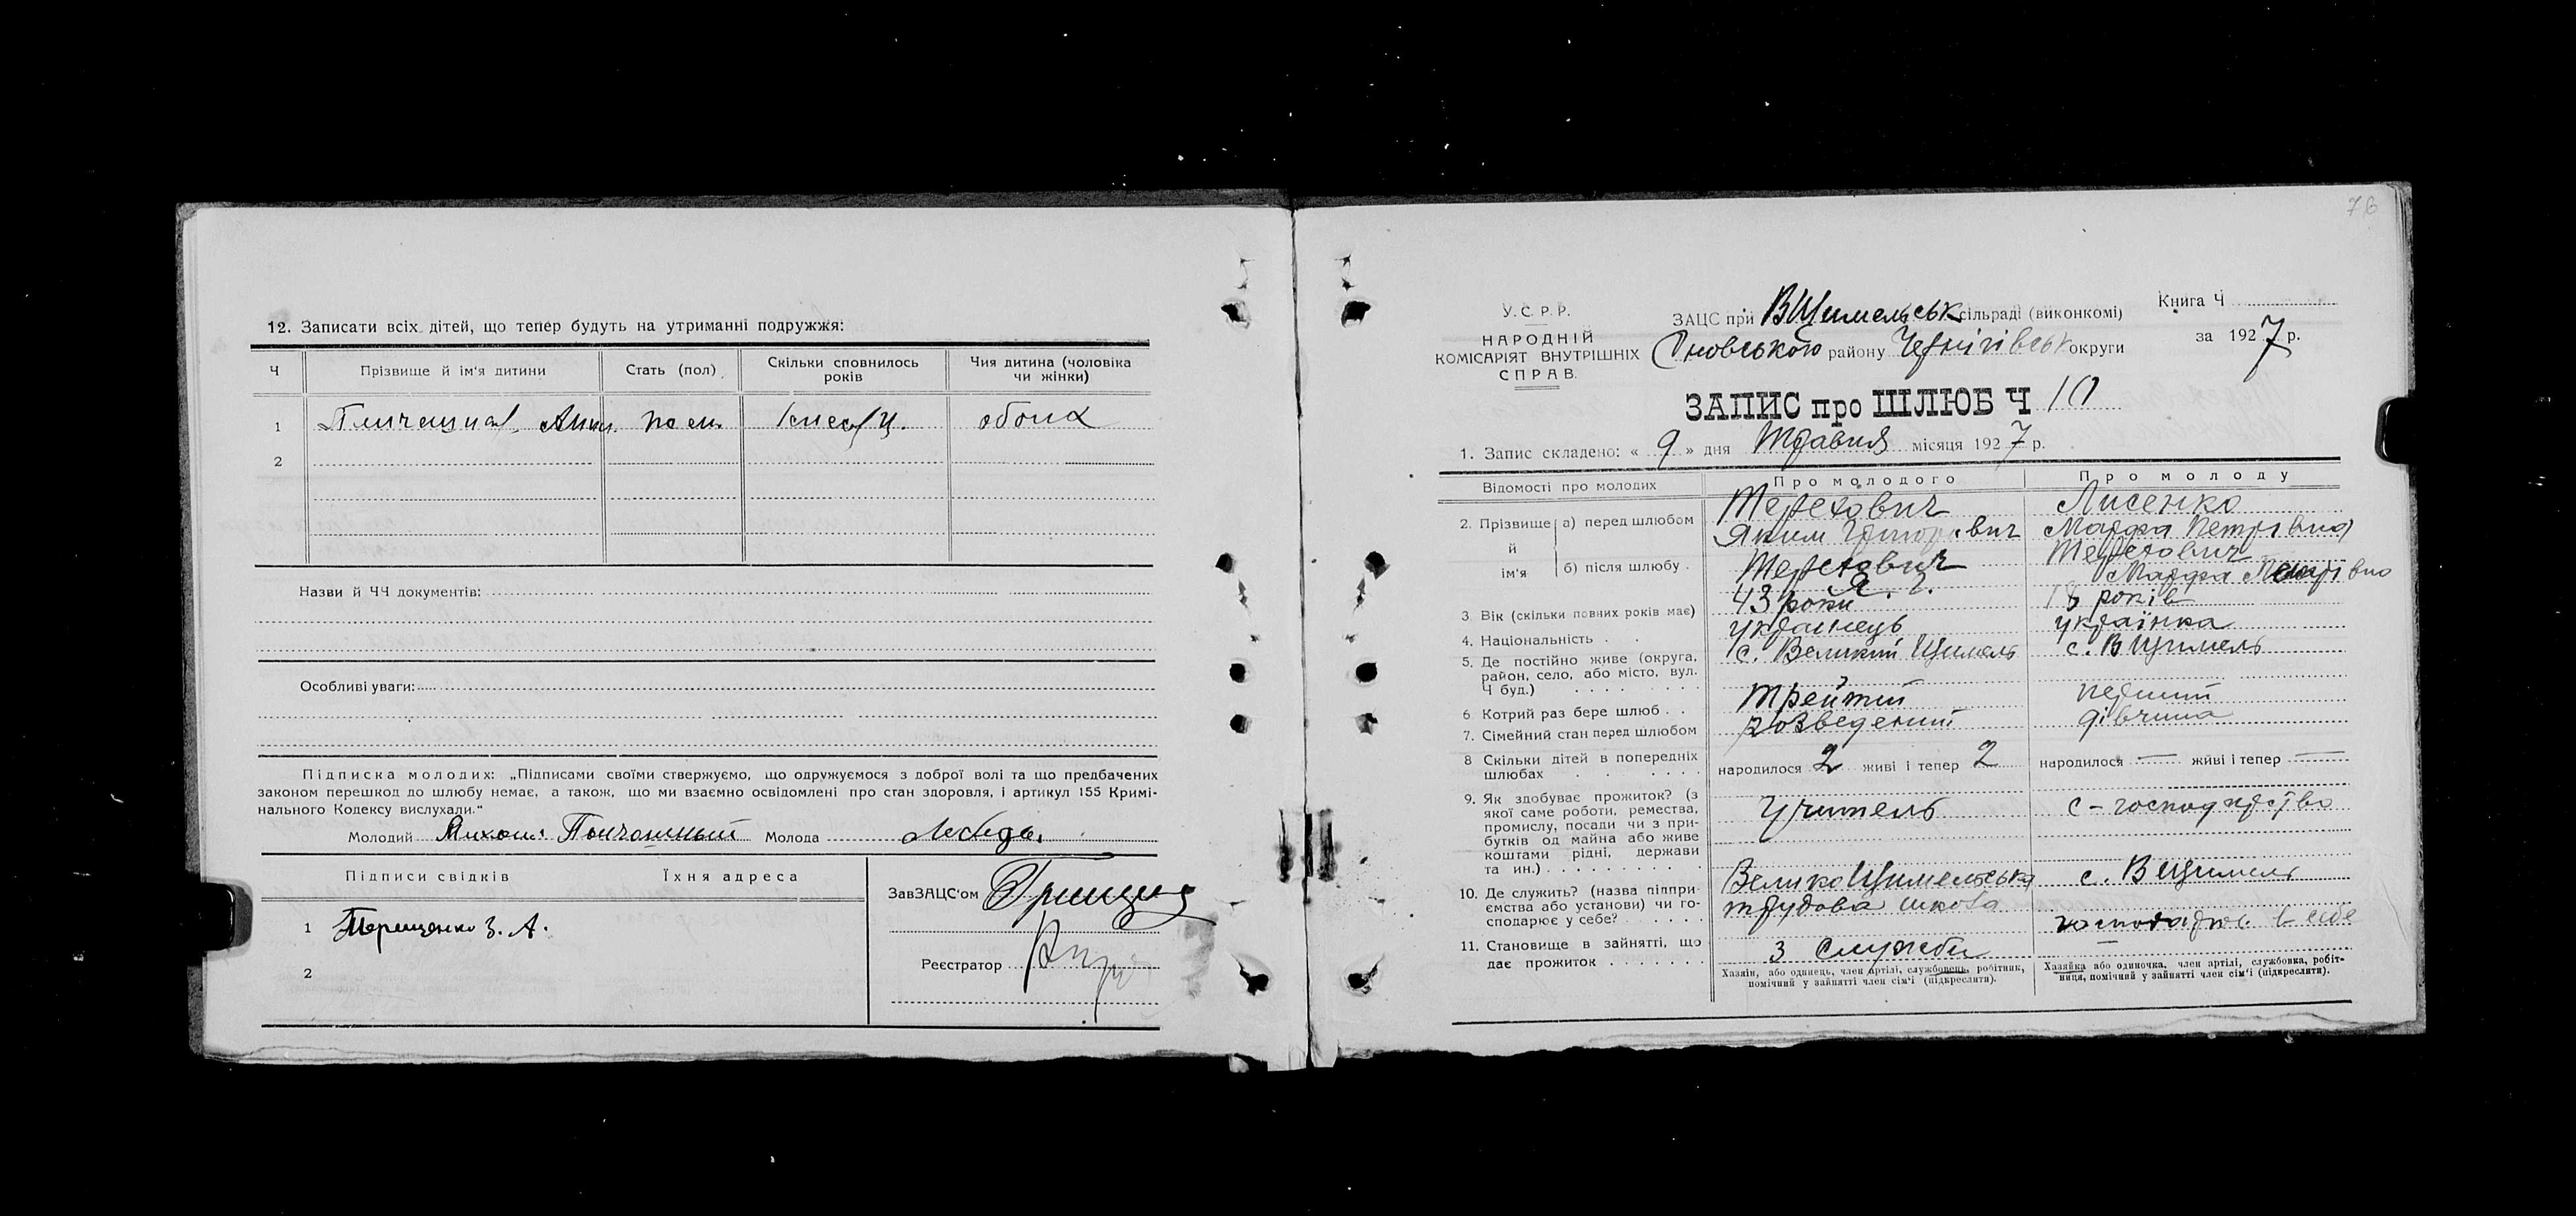 12. Записати всіх дітей, що тепер будуть на утриманні подружжя:
Ч Прізвище й ім'я дитини Стать (пол) Скільки сповнилось років Чия дитина (чоловіка чи жінки)
1 обоих
2
Назви й ЧЧ документів:
Особливі уваги:
Підписка молодих: „Підписами своїми ствержуємо, що одружуємося з доброї волі та що предбачених
законом перешкод до шлюбу немає, а також, що ми взаємно освідомлені про стан здоровля, і артикул 155 Кримі-
нального Кодексу вислухали."
Молодий Молода Лебедь
Підписи свідків Їхня адреса
ЗавЗАЦС'ом
1 Терещенко З. А.
Реєстратор
2
76
У.С.Р.Р.
НАРОДНІЙ
КОМІСАРІЯТ ВНУТРІШНІХ
СПРАВ.
ЗАЦС при ВЩимельськ сільраді (виконкомі)
Сновського району Чернігівськ округи
Книга Ч
за 1927 р.
ЗАПИС про ШЛЮБ Ч 10
1. Запис складено: « 9 » дня Травня місяця 1927 р.
Відомості про молодих Про молодого Про молоду
2. Прізвище й ім'я
а) перед шлюбом
Яким Григорович
Лисенко
Марфа Петрівна
б) після шлюбу
Я. Г.
Марфа Петрівна
3 Вік (скільки повних років має) 43 роки років
4. Національність українець українка
5. Де постійно живе (округа, район, село, або місто, вул. Ч буд.) с. Великий Щимель с. В Щимель
6 Котрий раз бере шлюб Трейтий перший
7. Сімейний стан перед шлюбом розведений дівчина
8 Скільки дітей в попередніх шлюбах народилося 2 живі і тепер 2 народилося — живі і тепер —
9. Як здобуває прожиток? (з якої саме роботи, ремества, промислу, посади чи з прибутків од майна або живе коштами рідні, держави та ин.) Учитель с-господарство
10. Де служить? (назва підприємства або установи) чи господарює у себе? ВеликоЩимельська трудова школа с. В Щимель
господарює в себе
11. Становище в зайнятті, що дає прожиток З служби
Хазяїн, або одинець, член артілі, службовець, робітник, помічний у зайнятті член сім'ї (підкреслити).
Хазяйка або одиночка, член артілі, службовка, робітниця, помічний у зайнятті член сім'ї (підкреслити).